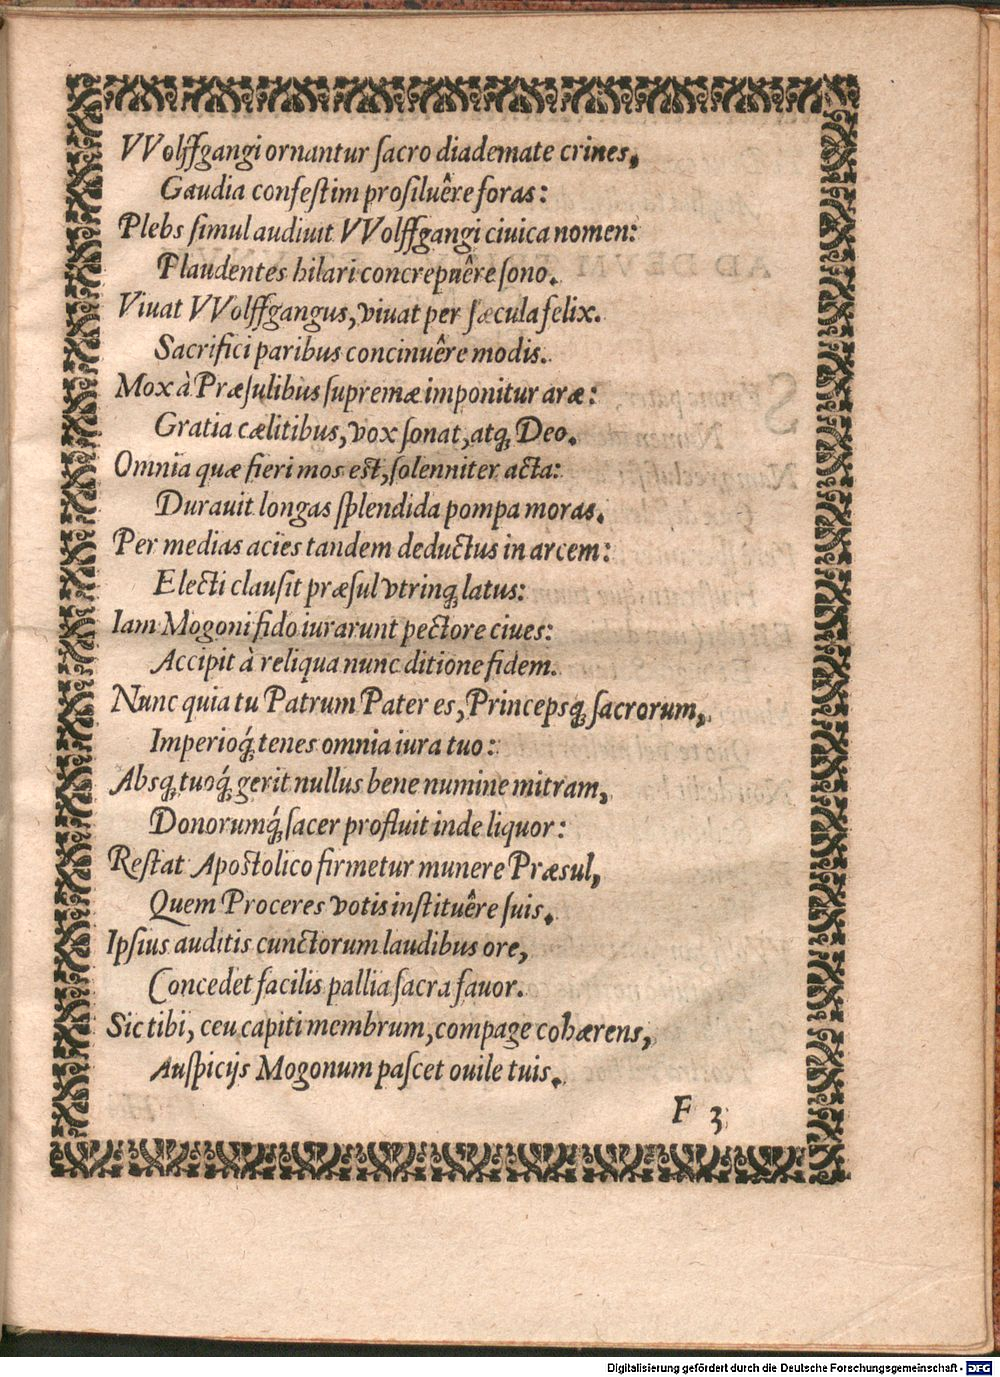 VVolffgangi ornantur sacro diademate crines,
Gaudia confestim prosiluêre foras:
Plebs simul audiuit VVolffgangi ciuica nomen:
Plaudentes hilari concrepuêre sono.
Viuat VVolffgangus, viuat per sæcula felix.
Sacrifici paribus concinuêre modis.
Mox à Præsulibus supremæ imponitur aræ:
Gratia cælitibus, vox sonat, atq́; Deo.
Omnia quæ fieri mos est, solenniter acta:
Durauit longas splendida pompa moras.
Per medias acies tandem deductus in arcem:
Electi clausit præsul vtrinq́; latus:
Iam Mogoni fido iurarunt pectore ciues:
Accipit à reliqua nunc ditione fidem.
Nunc quia tu Patrum Pater es, Princepsq́; sacrorum,
Imperioq́; tenes omnia iura tuo:
Absq́; tuoq́; gerit nullus bene numine mitram,
Donorumq́; sacer profluit inde liquor:
Restat Apostolico firmetur munere Præsul,
Quem Proceres votis instituêre suis.
Ipsius auditis cunctorum laudibus ore,
Concedet facilis pallia sacra fauor.
Sic tibi, ceu capiti membrum, compage cohærens,
Auspicijs Mogonum pascet ouile tuis.
F 3
Digitalisierung gefördert durch die Deutsche Forschungsgemeinschaft - DFG